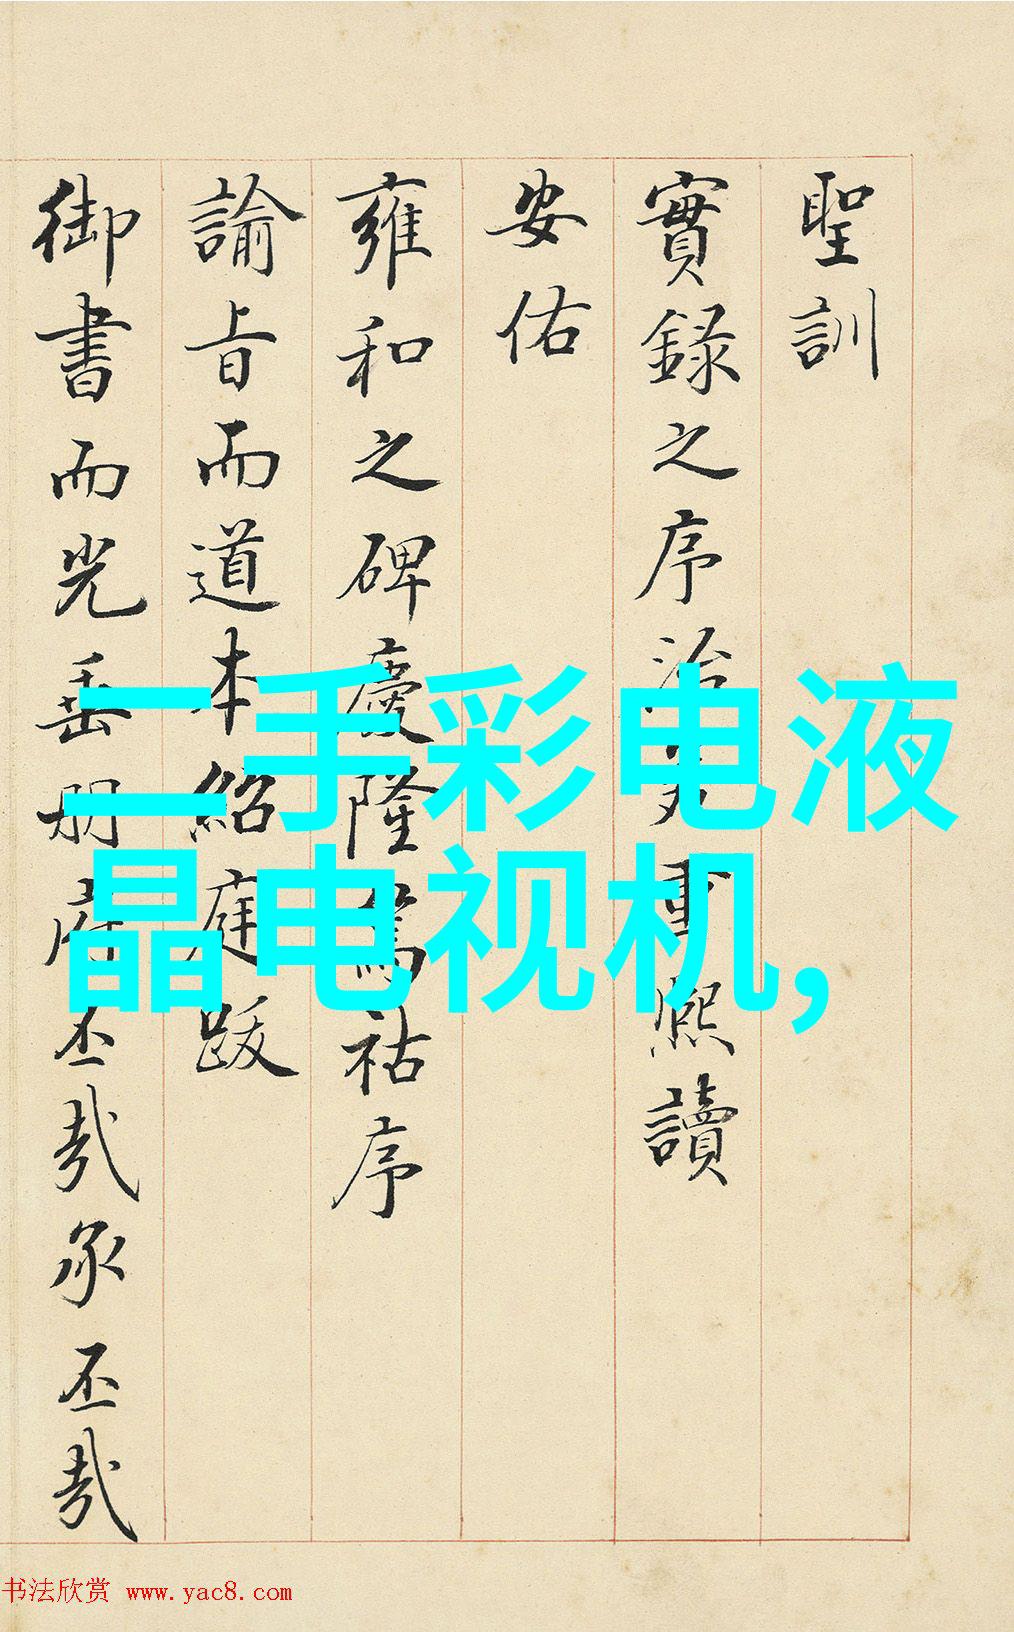 聖訓
實錄之序治重熙讀
安佑
雍和之碑慶隆篤祜序
諭旨而道本紹庭跋
御書而光垂册府丕哉承丕哉
二手彩电液
晶电视机,
书法欣赏 www.yac8.com